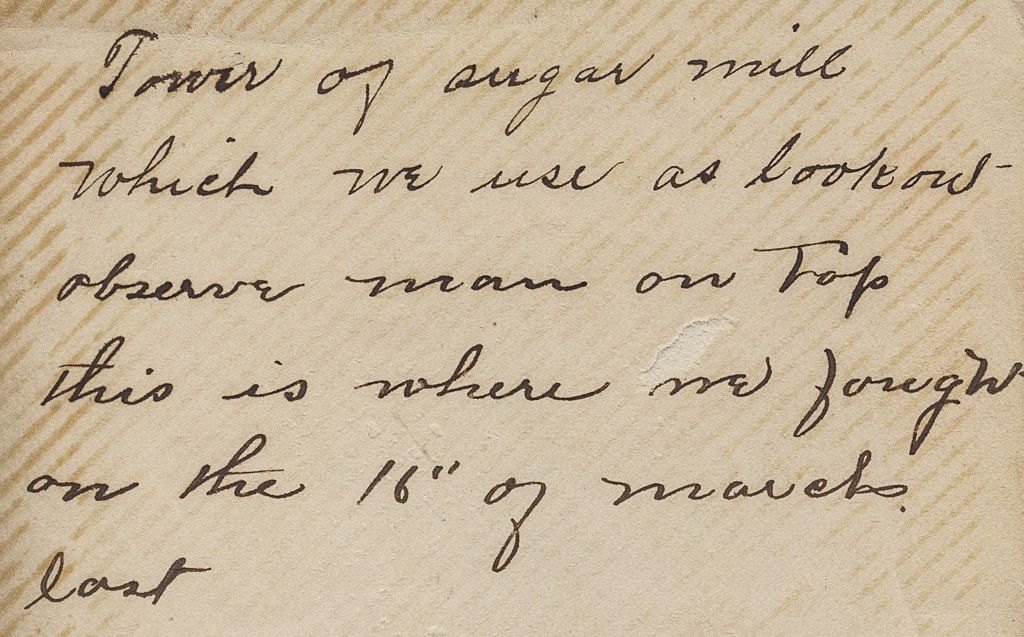 Tower of sugar mill
which we use as lookout
observe man on Top
this is where we fought
on the 16" of march.
last